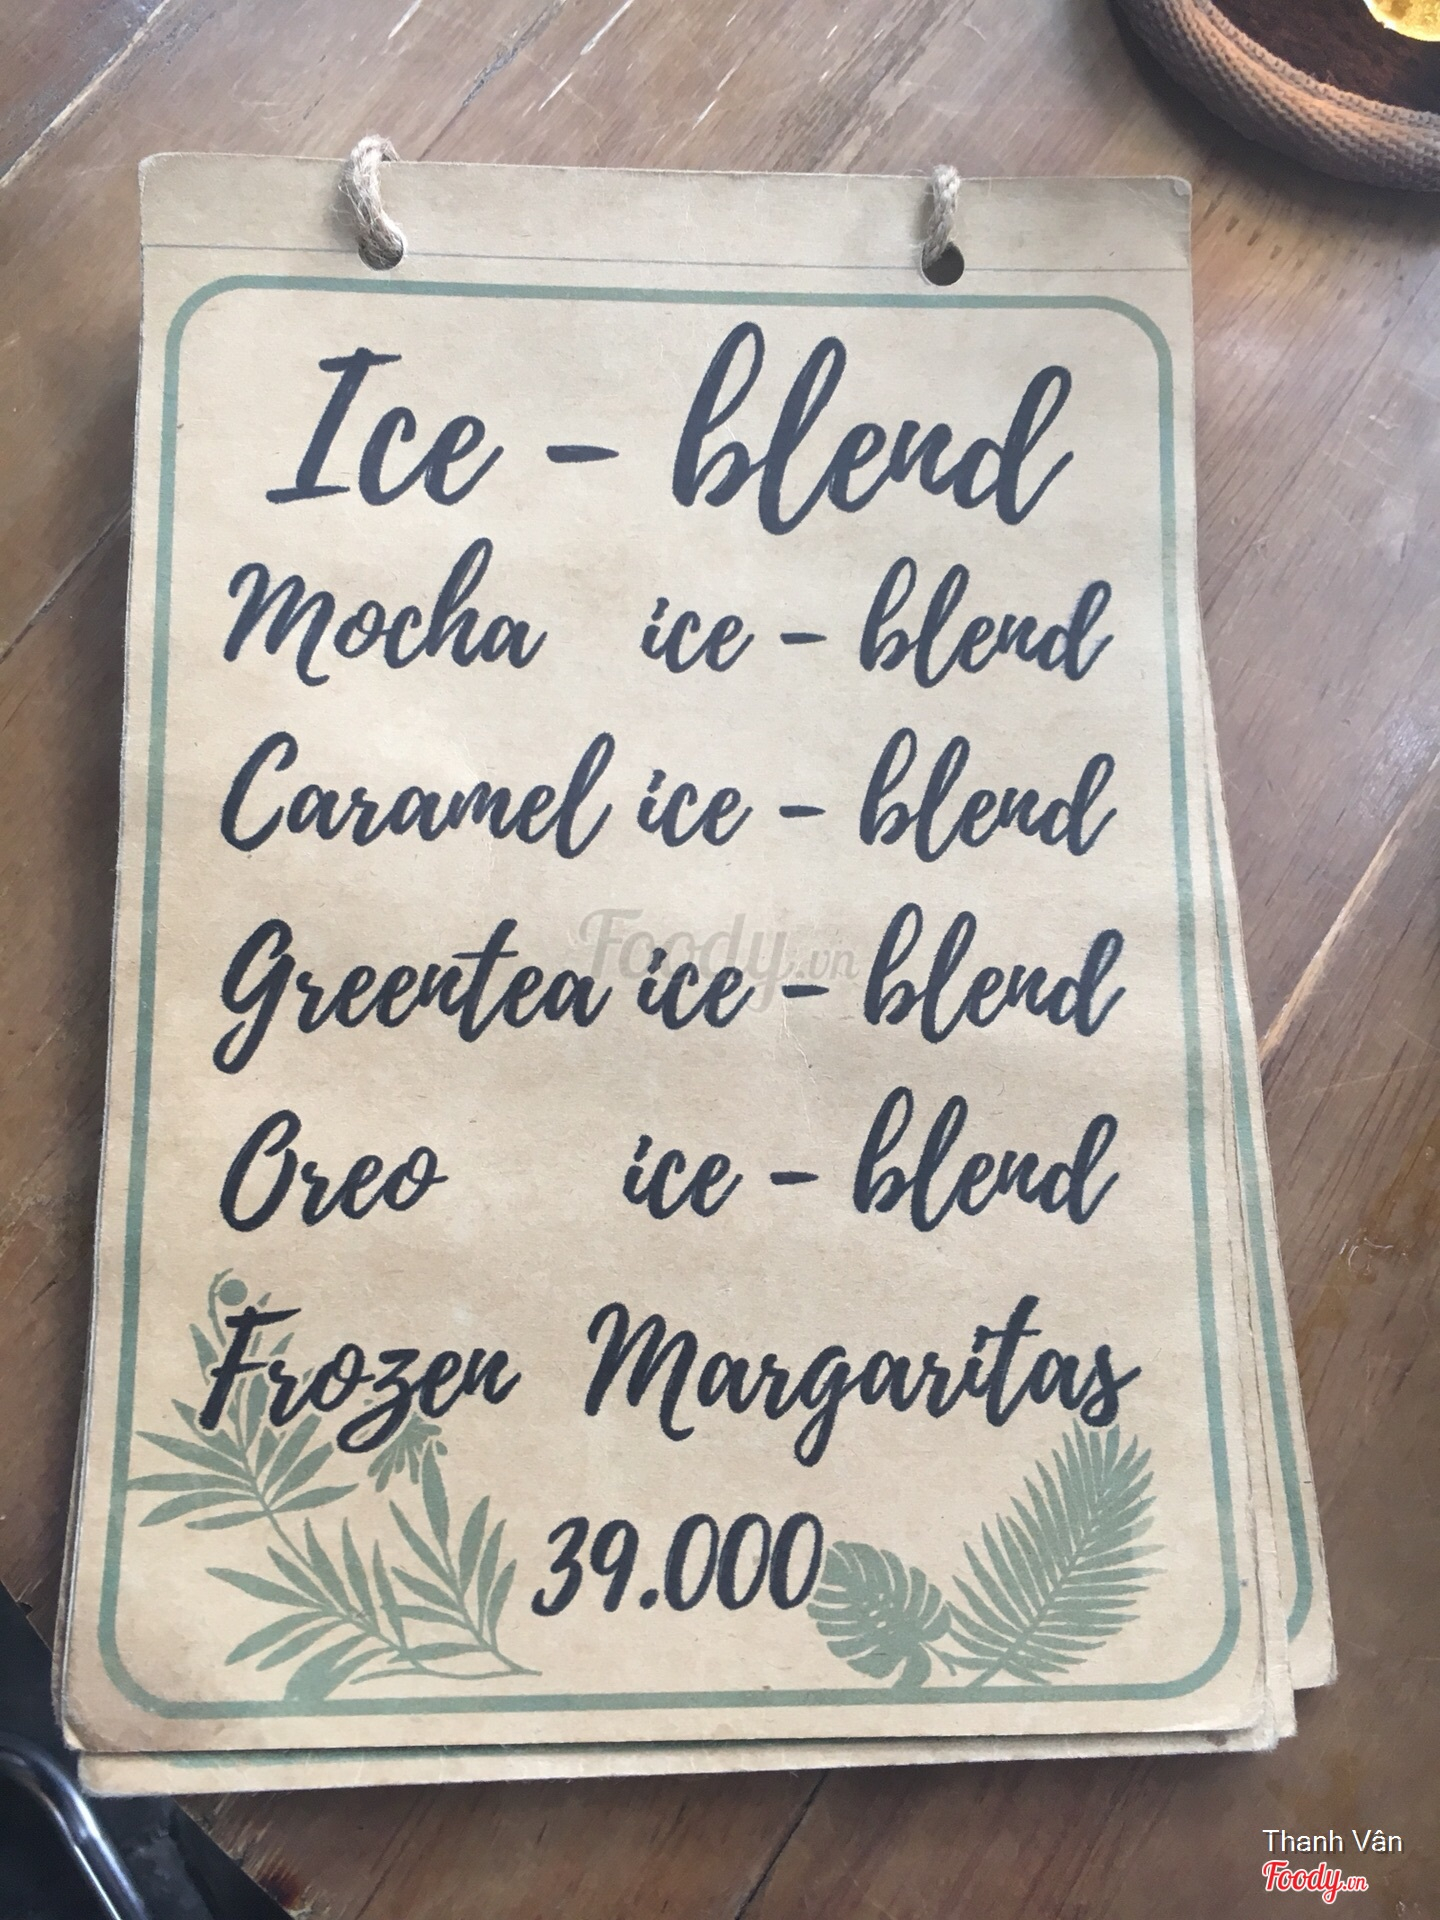 Ice - blend
Mocha ice - blend
Caramel ice - blend
Foody.vn
Greentea ice - blend
Oreo ice - blend
Frozen Margaritas
39.000
Thanh Vân
Foody.vn